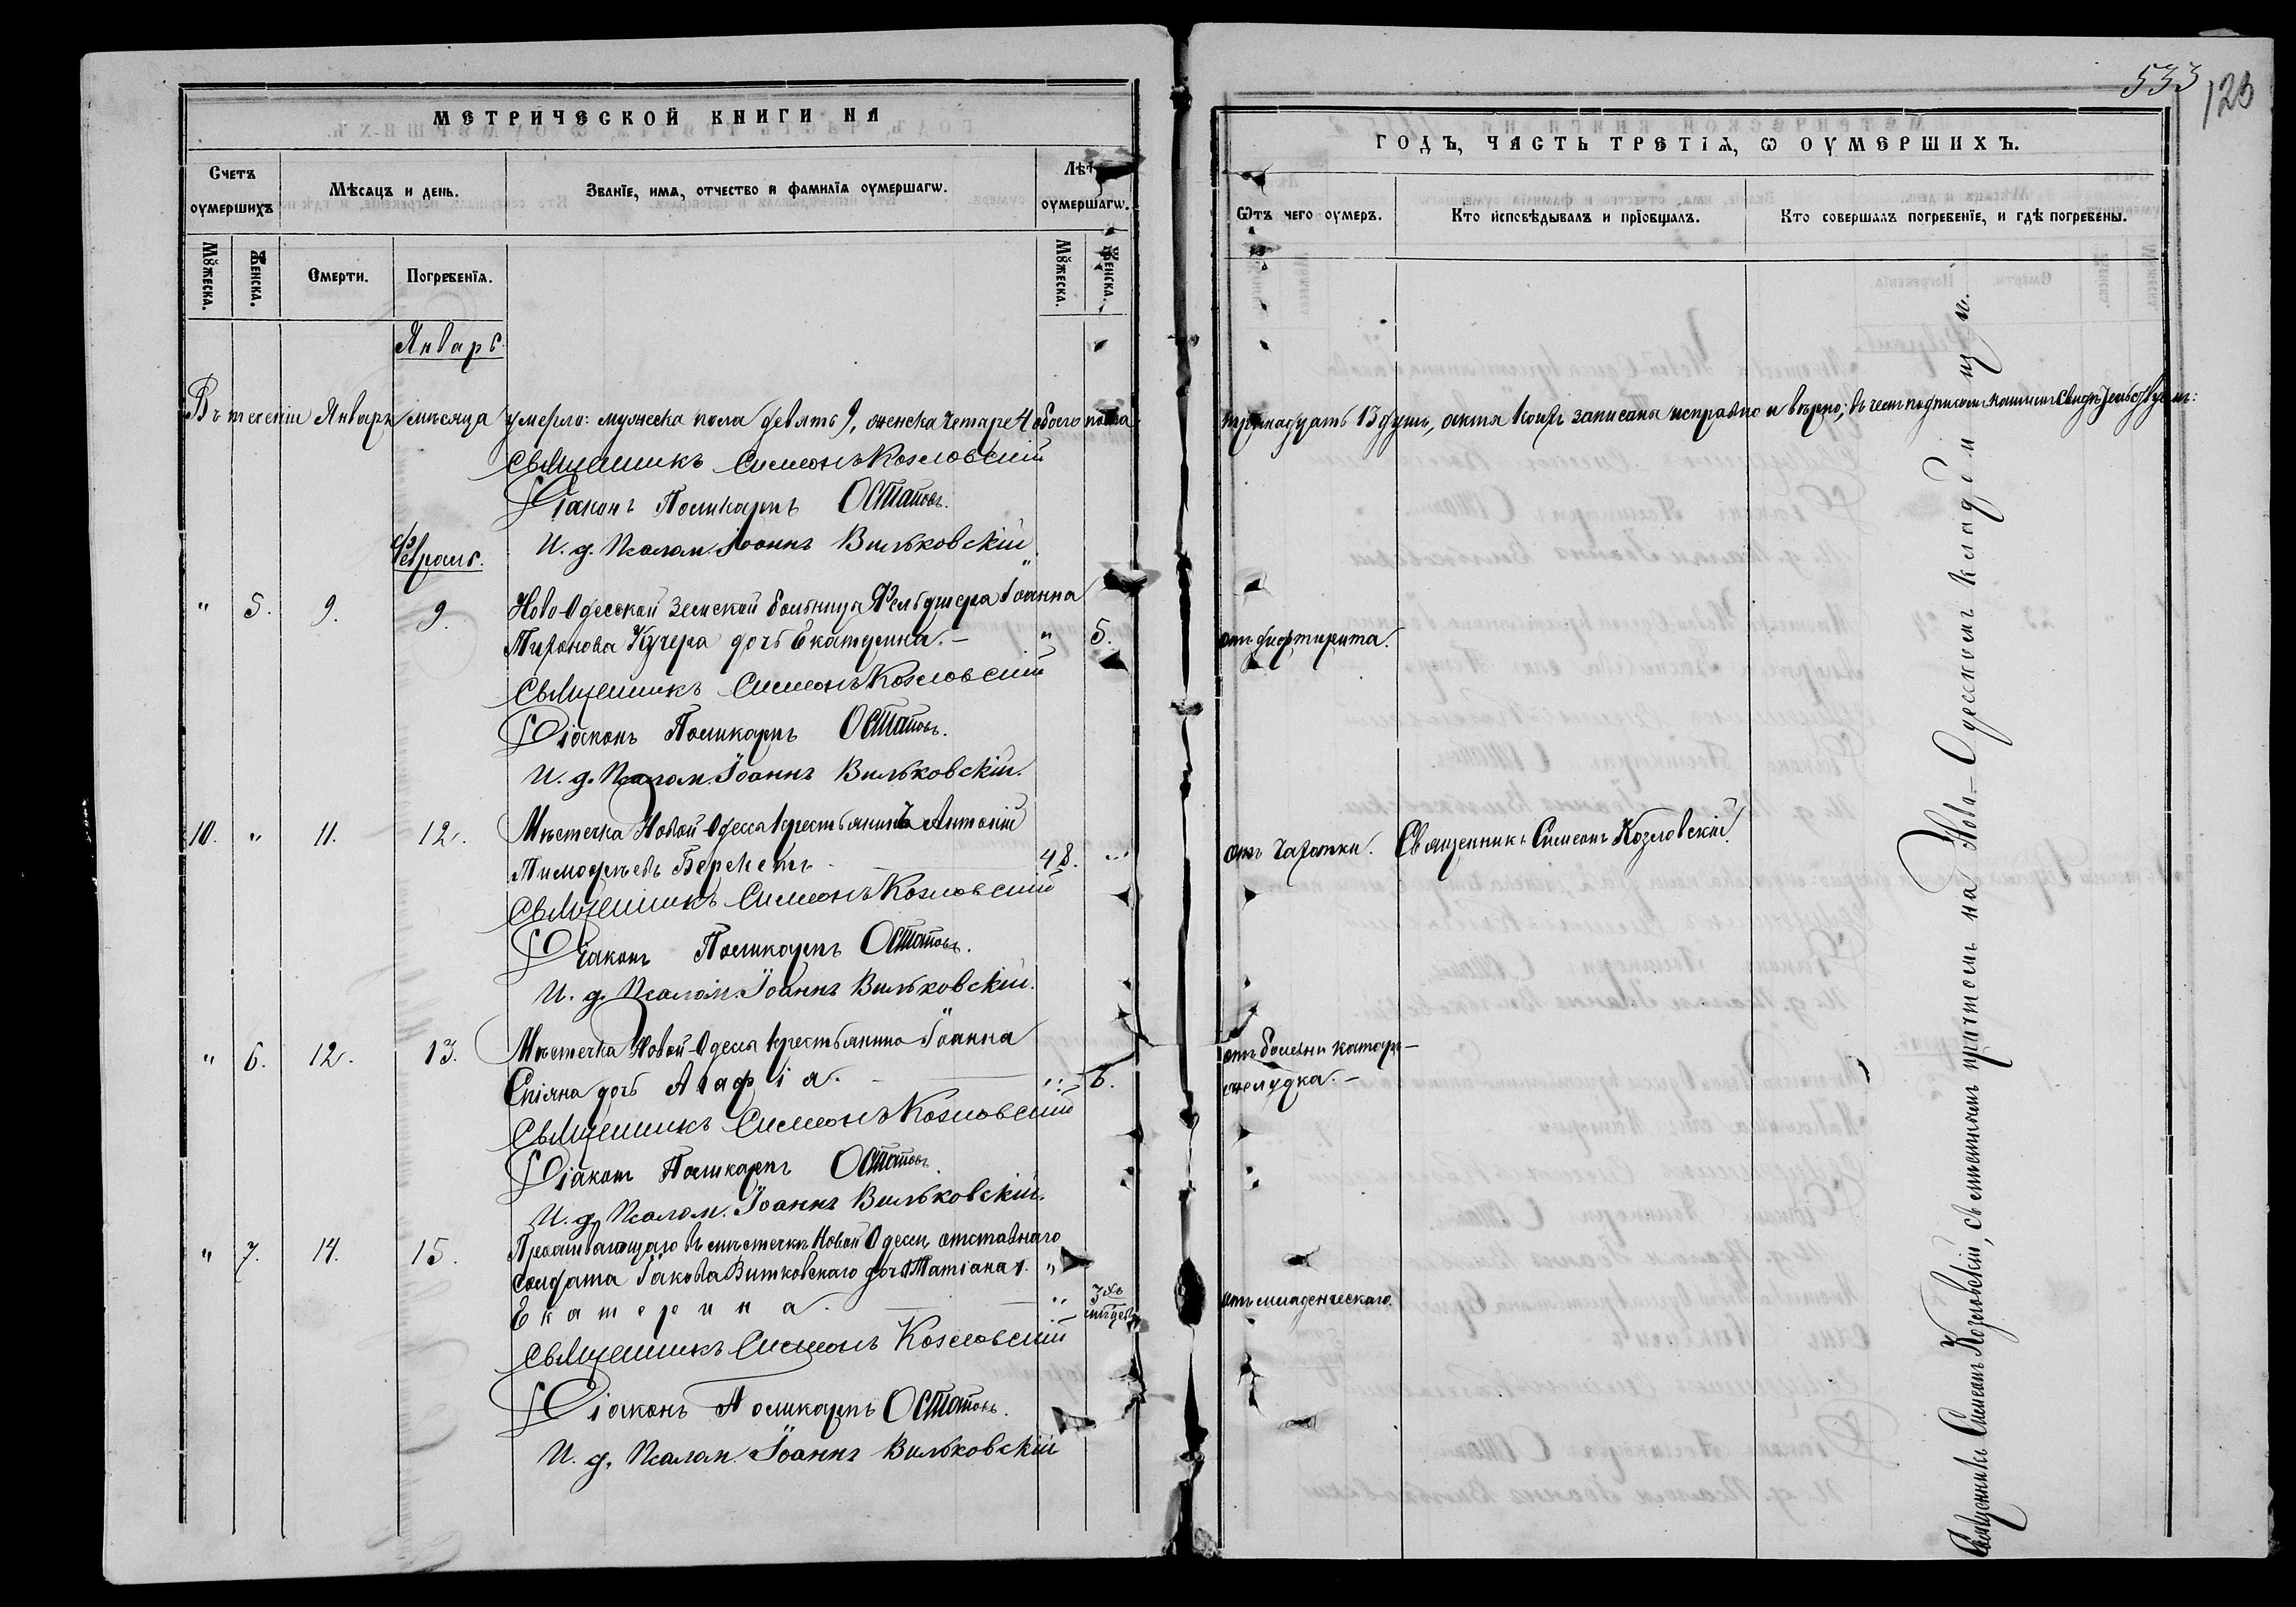 533
123
МЕТРИЧЕСКОЙ КНИГИ НА
ГОДЪ, ЧАСТЬ ТРЕТІѦ, Ѡ ОУМЕРШИХЪ.
Счетъ оумершихъ
Мѣсяцъ и день.
Званїе, имѧ, отчество и фамилїѧ оумершагѡ.
Лѣт
оумершагѡ.
Ѿтъ чего оумеръ.
Кто исповѣдывалъ и прїобщалъ.
Кто совершалъ погребенїе, и гдѣ погребены.
Мꙋжеска.
Женска.
Смерти.
Погребенїѧ.
Мꙋжеска.
Женска.
Январь.
Въ теченіи Январѣ мѣсяца умерло: мужеска пола девять 9, женска четыре 4 обоего пола
тринадцать 13 душъ, актя коихъ записаны исправно и вѣрно; въ чемъ подписомъ нашимъ свидѣтельствуемъ:
Священникъ Симеонъ Козловскій
Діаконъ Поликарпъ Остаповъ.
И. д. Псалом. Іоаннъ Вильковскій
Февраль.
" 5. 9. 9. Ново-Одесской Земской больницы Фельдшера Іоанна
Миронова Кучера дочь Екатерина. — " 5. отъ дифтирита.
Священникъ Симеонъ Козловскій
Діаконъ Поликарпъ Остаповъ.
И. д. Псалом. Іоаннъ Вильковскій.
10. " 11. 12. Мѣстечка Новой-Одессы крестьянинъ Антоній
Тимофѣевъ 48. " отъ чахотки. Священникъ Симеонъ Козловскій.
Священникъ Симеонъ Козловскій
Діаконъ Поликарпъ Остаповъ.
И. д. Псалом. Іоаннъ Вильковскій.
" 6. 12. 13. Мѣстечка Новой-Одессы крестьянина Іоанна
дочь Агафія. — " 6. отъ болезни катарь желудка. —
Священникъ Симеонъ Козловскій
Діаконъ Поликарпъ Остаповъ.
И. д. Псалом. Іоаннъ Вильковскій.
" 7. 14. 15. Проживающаго въ мѣстечкѣ Новой Одессы отставнаго
солдата Іакова Витковскаго дочь Татіана. "
Екатерина. — " 3хъ отъ младенческаго.
Священникъ Симеонъ Козловскій
Діаконъ Поликарпъ Остаповъ.
И. д. Псалом. Іоаннъ Вильковскій
Священникъ Симеонъ Козловскій, съ причтомъ на Ново-Одесскомъ кладбищѣ.